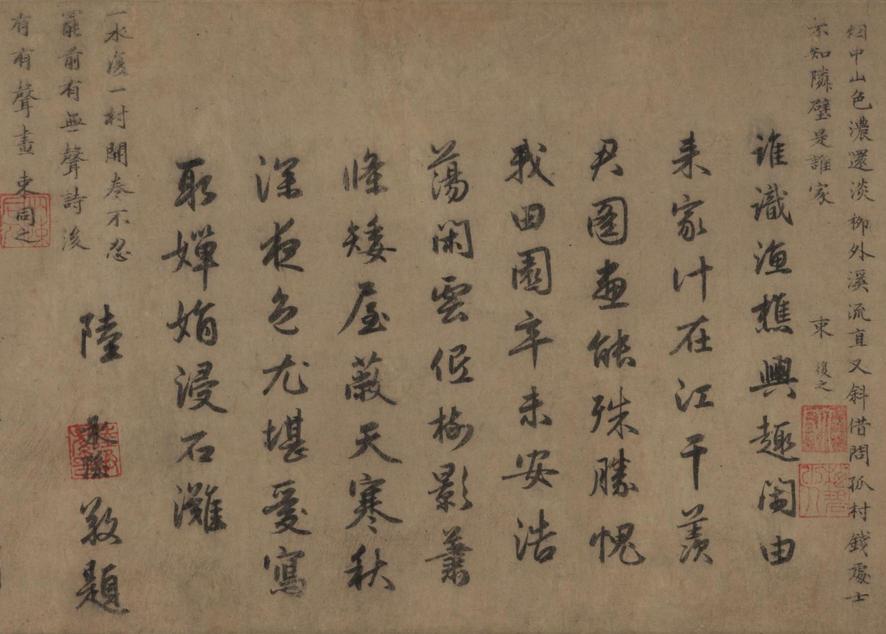 烟中山色濃還淡柳外溪流直又斜借問孤村錢處士
不知隣壁是誰家
東
復之
誰識漁樵興趣閑由
来家计在江干羡
君圖畫能殊勝愧
我田園卒未安浩
蕩闲雲低樹影蕭
條矮屋蔽天寒秋
深夜色尤堪愛寫
取嬋娟浸石灘
陸
敬題
一水濅一村開奏不忍
前有無聲詩後
有有聲畫東同之